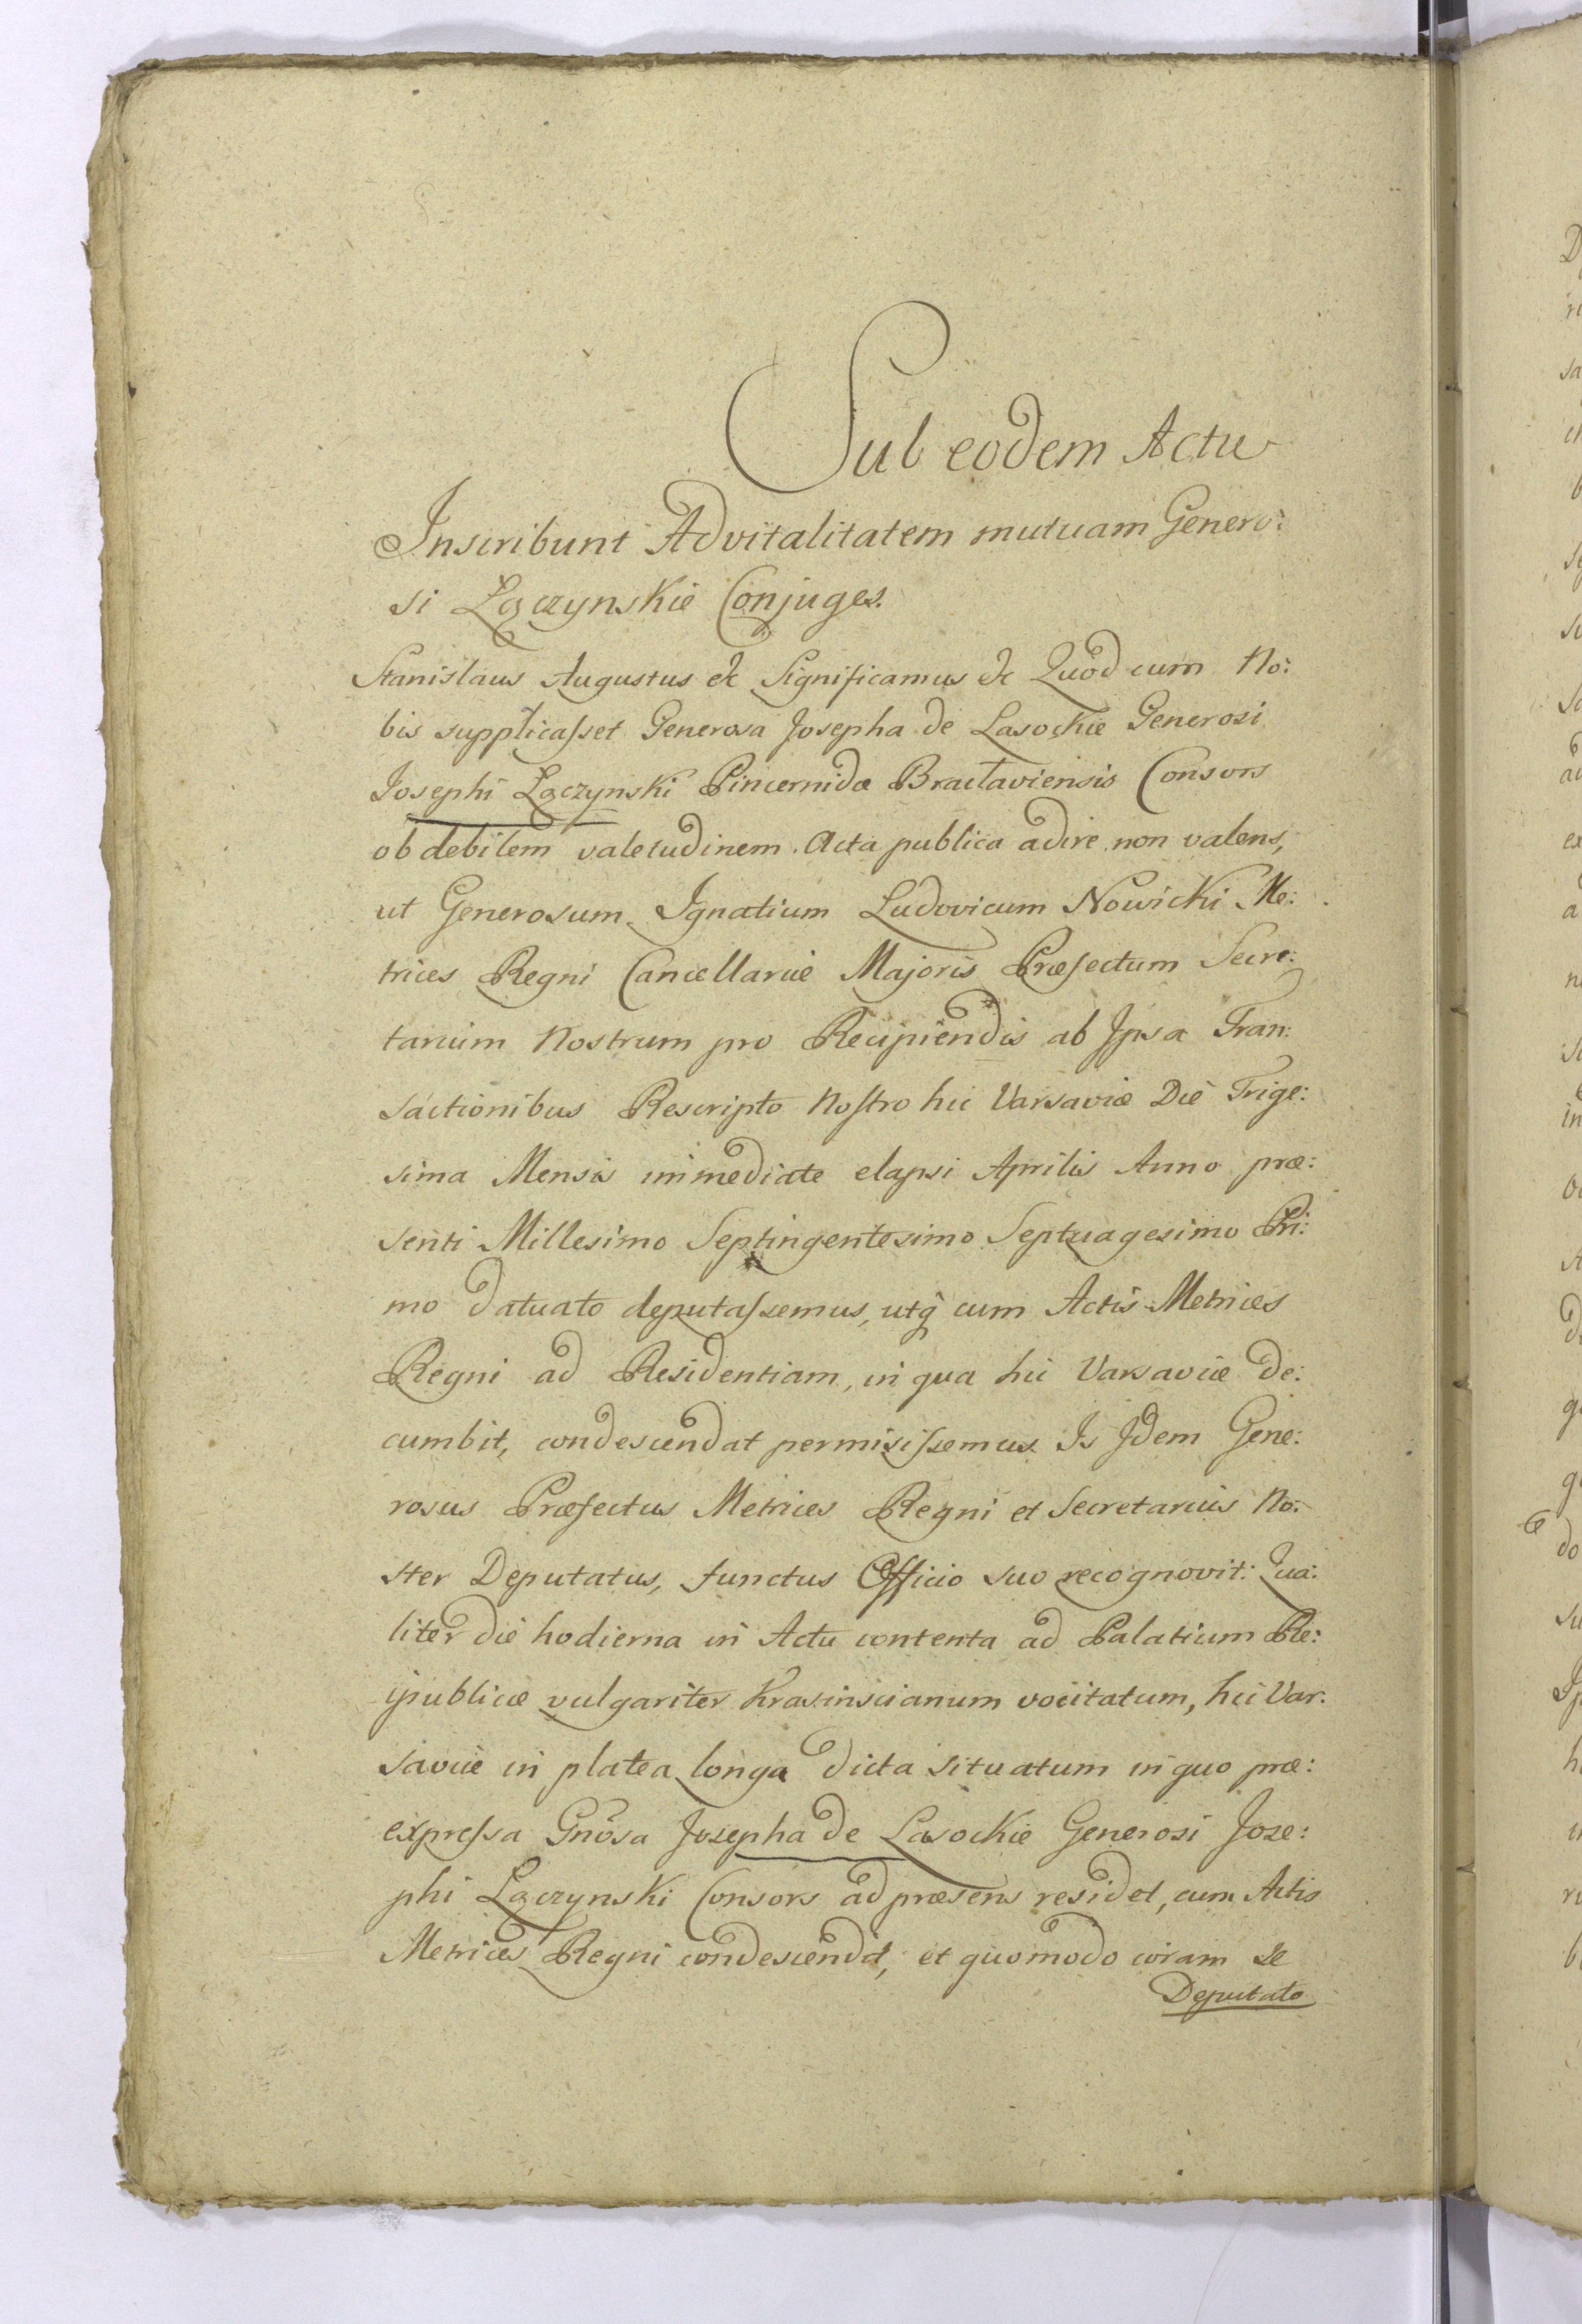 Sub eodem Actu
Inscribunt Advitalitatem mutuam Genero:
si Łączynskie Conjuges.
Stanislaus Augustus &c Significamus &c Quod cum No:
bis supplicaſset Generosa Josepha de Lasockie Generosi
Josephi Łączynski Pincernidæ Bractaviensis Consors
ob debilem valetudinem Acta publica adire non valens,
ut Generosum Ignatium Ludovicum Nowicki Me:
trices Regni Cancellariæ Majoris Præfectum Secre:
tarium Nostrum pro Recipiendis ab Ipsa Tran:
sactionibus Rescripto Noſtro hic Varsaviæ Die Trige:
sima Mensis immediate elapsi Aprilis Anno præ:
senti Millesimo Septingentesimo Septuagesimo Pri:
mo datuato deputaſsemus, utq cum Actis Metrices
Regni ad Residentiam, in qua hic Varsaviæ de:
cumbit, condescendat permisiſsemus. Is Idem Gene:
rosus Præfectus Metrices Regni et Secretarius No:
ster Deputatus, functus Officio suo recognovit: Qua:
liter die hodierna in Actu contenta ad Palatium Re:
ipublicæ vulgariter Krasinscianum vocitatum, hic Var:
saviæ in platea longa dicta situatum in quo præ:
expreſsa Gnosa Josepha de Lasockie Generosi Jose:
phi Łączynski Consors ad præsens residet, cum Actis
Metrices Regni condescendit, et quomodo coram se
Deputato